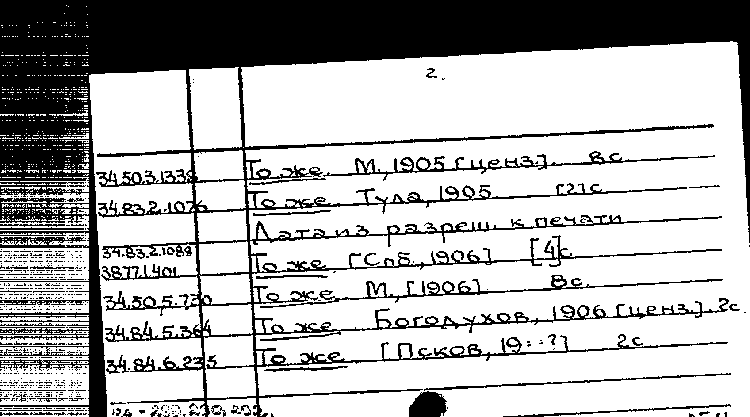 2.
34.50.3.1338 То же. М., 1905 [ценз.]. 8 с.
34.83.2.1076 То же. Тула, 1905 [2] с
Дата из разреш. к печати
34.83.2.1088
38.77.1.401 То же [Спб., 1906] [4] с
34.50.5.730 То же М., [1906] 8 с.
34.84.5.364 То же. Богодухов, 1906 [ценз.]. 2 с.
34.84.6.235 То же. [Псков, 19--?] 2 с